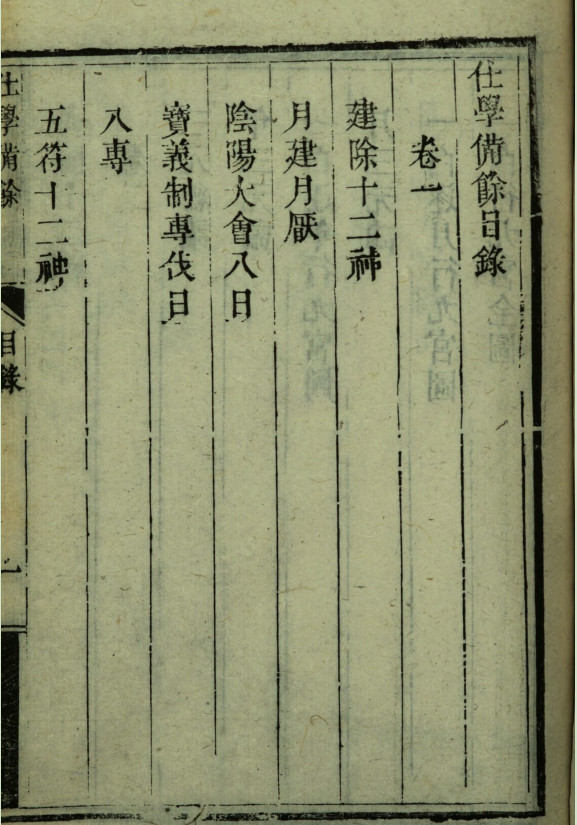 仕學備餘目錄
卷一
建除十二神
月建月厭
陰陽大會八日
寶義制專伐日
八專
五符十二神
仕學備餘
目錄
一